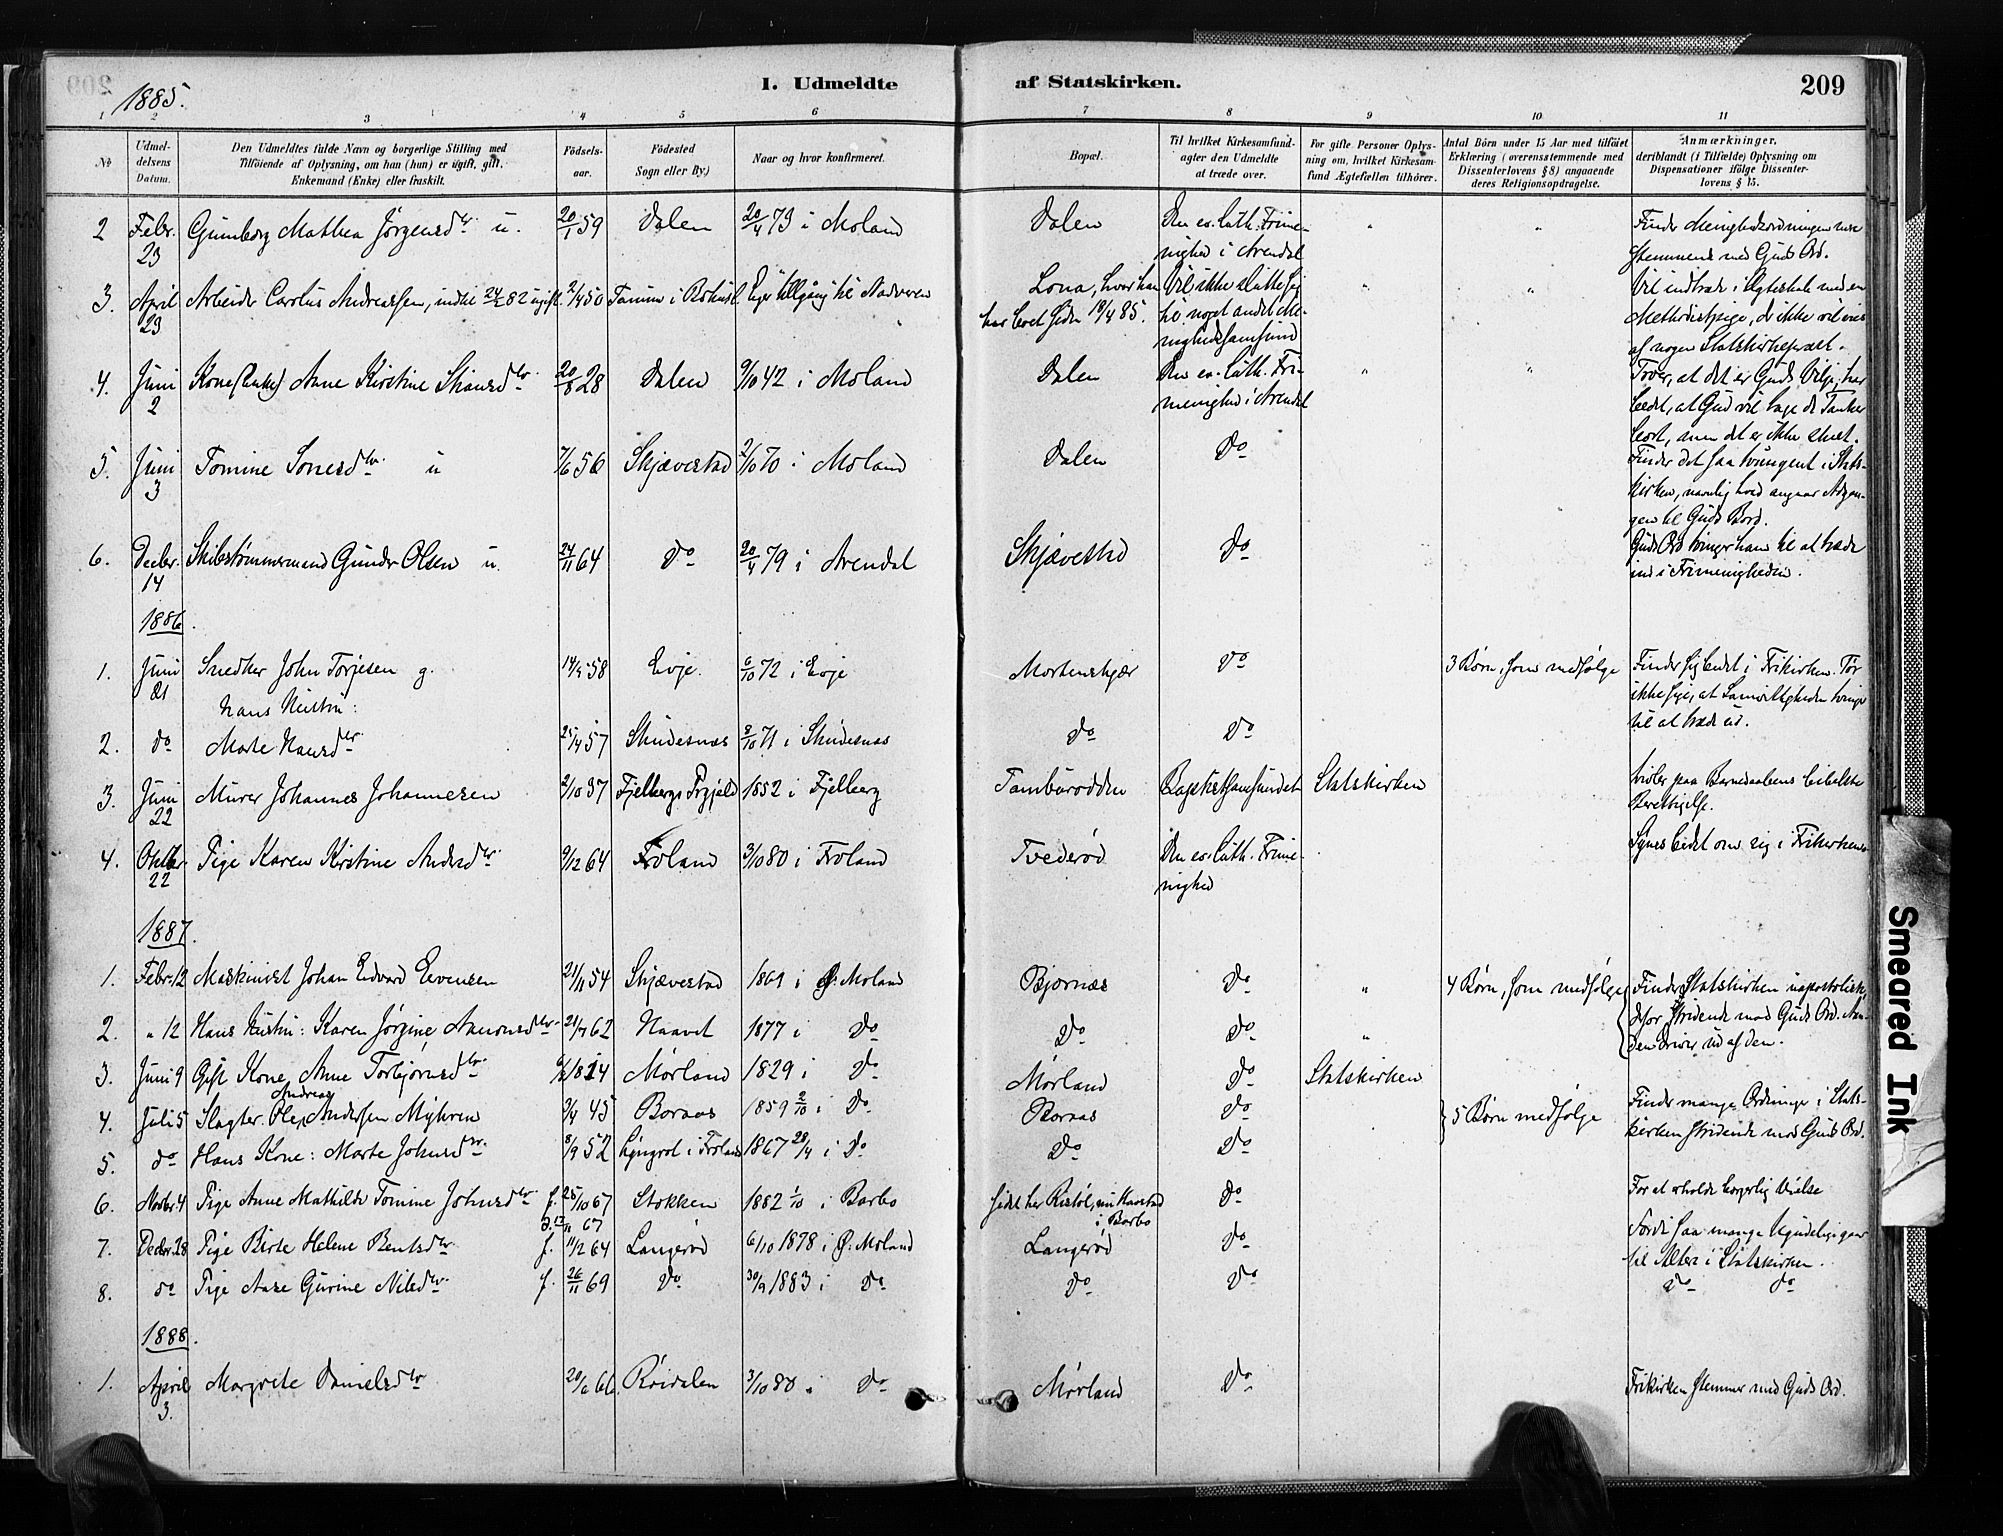 209
1885.
I. Udmeldte af Statskirken.
1 2 3 4 5 6 7 8 9 10 11
No
Udmeldelsens Datum.
Den Udmeldtes fulde Navn og borgerlige Stilling med
Tilføiende af Oplysning, om han (hun) er ugift, gift,
Enkemand (Enke) eller fraskilt.
Fødselsaar.
Fødested
Sogn eller By)
Naar og hvor konfirmeret.
Bopæl.
Til hvilket Kirkesamfund
agter den Udmeldte
at træde over.
For gifte Personer Oplysning om, hvilket Kirkesamfund Ægtefællen tilhører.
Antal Børn under 15 Aar med tilføiet
Erklæring (overensstemmende med
Dissenterlovens § 8) angaaende
deres Religionsopdragelse.
Anmærkninger,
deriblandt (i Tilfælde) Oplysning om
Dispensationer ifølge Dissenterlovens § 15.
2 Febr. 23 Gunborg Mathea Jørgensdtr. u. 20/1 59 Dalen 20/4 73 i Moland Dalen Den ev. luth. Frimenighed i Arendal " " Finder Menighedsordningen mere stemmende med Guds Ord.
3. April 23 Arbeider Carolus Andreassen, indtil 24/2 82 ugift 2/4 50 Tanum i Bohusl. Eger tillgång til Nadveren Lona, hvor han har boet siden 19/4 85. Vil ikke slutte sig til noget andet Menighedssamfund " " Vil indtræde i Ægteskab med en Methodistpige, der ikke vil vies af nogen Statskirkepræst.
4. Juni 2 Kone (Enke) Anne Kirstine dtr. 20/8 28 Dalen 9/10 42 i Moland Dalen Den ev. luth. Frimenighed i Arendal " " Troer, at det er Guds Vilje; har bedt, at Gud vil tage de Tanker bort, men det er ikke skeet.
5. Juni 3 Tomine dtr. u 7/6 56 Skjævestad 2/10 70 i Moland Dalen Do Finder det saa tvungent i Statskirken, navnlig hvad angaar Adgangen til Guds Bord.
6. Decbr. 14 Skibstømmermand Gunder Olsen u. 24/11 64 Do 20/4 79 i Arendal Skjævestad Do Guds Ord tvinger ham til at træde ind i Frimenigheden.
1886.
1. Juni 21 Snedker John Torjesen g. 14/5 58 Evje. 6/10 72 i Evje Mortenskjær Do 3 Børn, som medfølge Finder sig bedst i Frikirken. Tør ikke sige, at Samvittigheden tvinger til at træde ud.
Hans Hustru:
2. do Marte Hansdtr 25/4 57 Skudesnæs 8/10 71 i Skudesnæs do Do
3. Juni 22 Murer Johannes Johannesen 2/10 37 Fjelbergs Prgjeld 1852 i Fjelberg Tamburodden Baptistsamfundet Statskirken tviler paa Barnedaabens bibelske Berettigelse.
4. Oktbr 22 Pige Karen Kirstine Andersdtr. 9/12 64 Froland 3/10 80 i Froland Tvederød Den ev. luth. Frimenighed Synes bedst om sig i Frikirken
1887.
1. Febr. 12 Maskinist Johan Edvard Evensen 21/11 54 Skjævestad 1869 i Ø. Moland Bjornæs Do " 4 Børn, som medfølge Finder Statskirken uapostolisk, derfor stridende mod Guds Ord. Aanden driver ud af den.
2. " 12 Hans Hustru: Karen Jørgine Aanonsdtr. 21/7 62 Naavet 1877 i Do Do Do "
3. Juni 9 Gift Kone Anne Torbjørnsdtr. 1814 Mørland 1829 i Do Mørland Do Statskirken
4. Juli 5 Slagter Ole Andreas Andersen Myhren 3/4 45 Boraas 1859 2/10 i Do Boraas Do 5 Børn medfølge Finder mange Ordninger i Statskirken stridende mod Guds Ord.
5. do Hans Kone: Marte Johnsdtr. 8/9 52 Lyngrot i Froland 1867 28/4 i Do Do Do
6. Novbr. 4 Pige Anne Mathilde Tomine Johnsdtr f. 25/10 67 d. 17/11 67 Stokken 1882 1/10 i Barbo i Barbo Do For at erholde borgerlig Vielse
7. Decbr. 28 Pige Birte Helene Bentsdtr. f. 11/12 64 Langerød 6/10 1878 i Ø. Moland Langerød Do Fordi saa mange Ugudelige gaar til Alters i Statskirken.
8. do Pige Aase Gurine Nilsdtr. f. 26/11 69 Do 30/9 1883 i Do Do Do Do do
1888.
1. April 3. Margrete Danielsdtr 20/6 66 Røidalen 3/10 80 i Do Mørland Do Frikirken stemmer med Guds Ord.
Smeared Ink